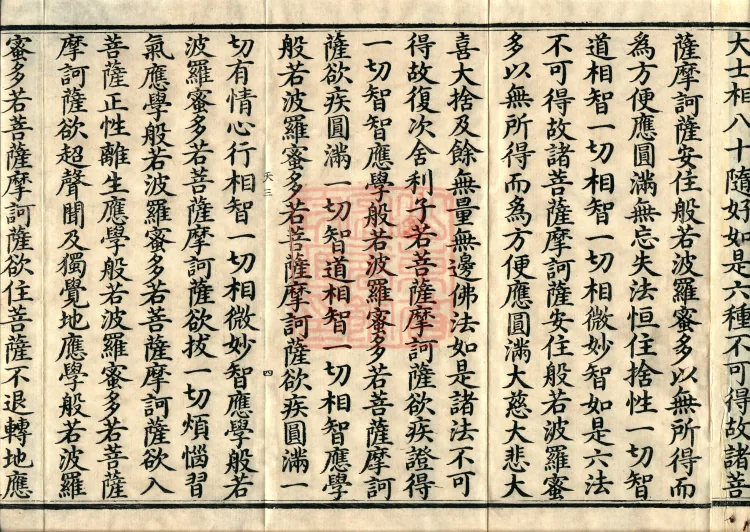 大士相八十隨好如是六種不可得故諸菩
薩摩訶薩安住般若波羅蜜多以無所得而
為方便應圓滿無忘失法恒住捨性一切智
道相智一切相智一切相微妙智如是六法
不可得故諸菩薩摩訶薩安住般若波羅蜜
多以無所得而為方便應圓滿大慈大悲大
喜大捨及餘無量無邊佛法如是諸法不可
得故復次舍利子若菩薩摩訶薩欲疾證得
一切智智應學般若波羅蜜多若菩薩摩訶
薩欲疾圓滿一切智道相智一切相智應學
般若波羅蜜多若菩薩摩訶薩欲疾圓滿一
天三 四
切有情心行相智一切相微妙智應學般若
波羅蜜多若菩薩摩訶薩欲拔一切煩惱習
氣應學般若波羅蜜多若菩薩摩訶薩欲入
菩薩正性離生應學般若波羅蜜多若菩薩
摩訶薩欲超聲聞及獨覺地應學般若波羅
蜜多若菩薩摩訶薩欲住菩薩不退轉地應